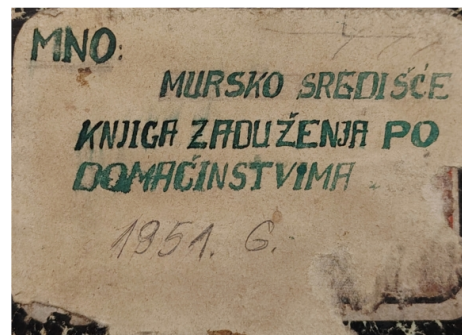 MNO:
MURSKO SREDIŠĆE
KNJIGA ZADUŽENJA PO
DOMAĆINSTVIMA
1951. G.